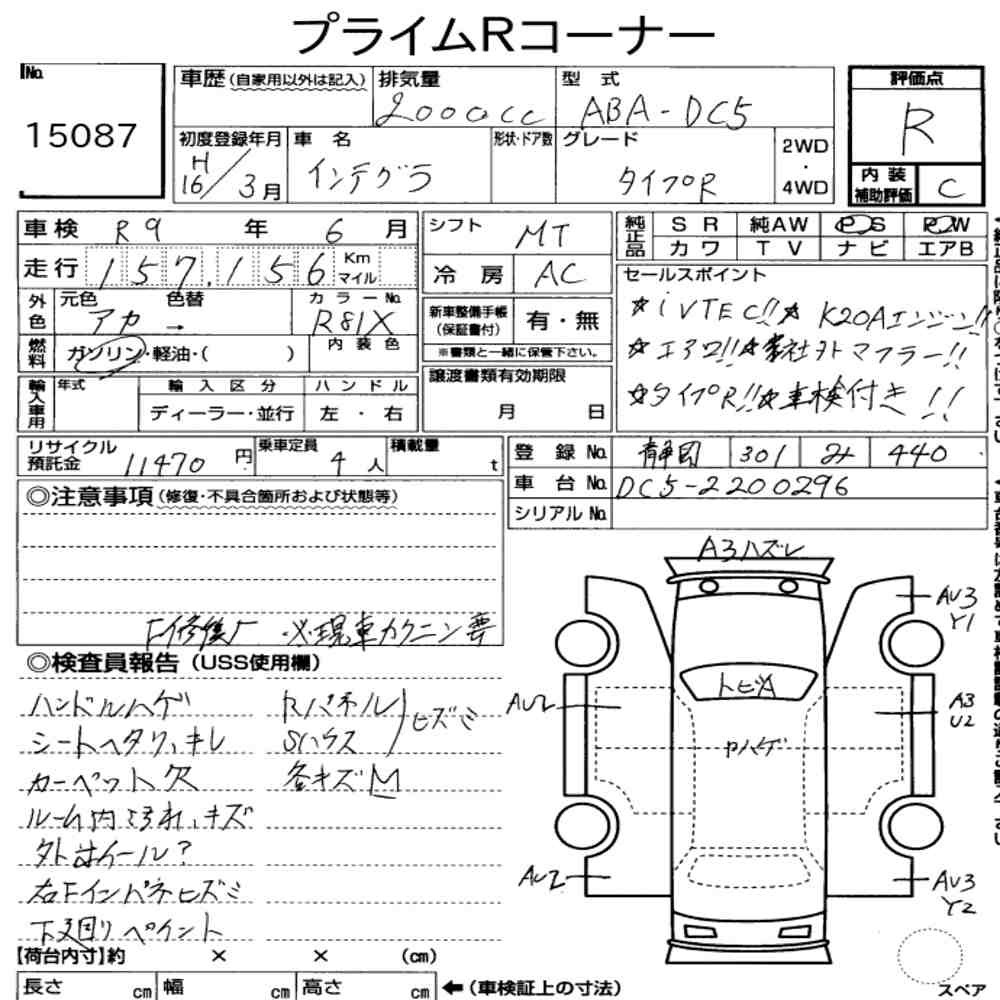 プライムRコーナー
No.
15087
車歴 (自家用以外は記入)
排気量
2000cc
型式
ABA-DC5
評価点
R
初度登録年月
H
16/3月
車名
インテグラ
形状・ドア数
グレード
タイプR
2WD
・
4WD
内装
補助評価
C
車検 R9 年 6 月
走行 157,156 Km
マイル
シフト
MT
冷房
AC
純正品
SR 純AW PS PW
カワ TV ナビ エアB
外色
元色 色替
アカ →
カラーNo.
R81X
内装色
燃料
ガソリン・軽油・( )
新車整備手帳
(保証書付)
有・無
※書類と一緒に保管下さい。
セールスポイント
☆iVTEC!!☆ K20Aエンジン!!
☆エアロ!!☆ 社外マフラー!!
☆タイプR!!☆車検付き!!
輸入車用
年式
輸入区分
ディーラー・並行
ハンドル
左・右
譲渡書類有効期限
月 日
リサイクル
預託金
11470 円
乗車定員
4 人
積載量
t
登録No. 静岡 301 み 440
車台No. DC5-2200296
シリアルNo.
◎注意事項(修復・不具合箇所および状態等)
F修復 ※現車カクニン要
◎検査員報告 (USS使用欄)
ハンドルハゲ
シートヘタリ、キレ
カーペット欠
ルーム内ヨゴレ、キズ
外ホイール?
右Fインパネヒズミ
下廻りペイント
Rパネル
Sハウス
ヒズミ
各キズM
A3ハズレ
AU3
Y1
トビA
AU2
A3
U2
ハゲ
AU2
AU3
Y2
スペア
【荷台内寸】約 × × (cm)
長さ cm 幅 cm 高さ cm
←(車検証上の寸法)